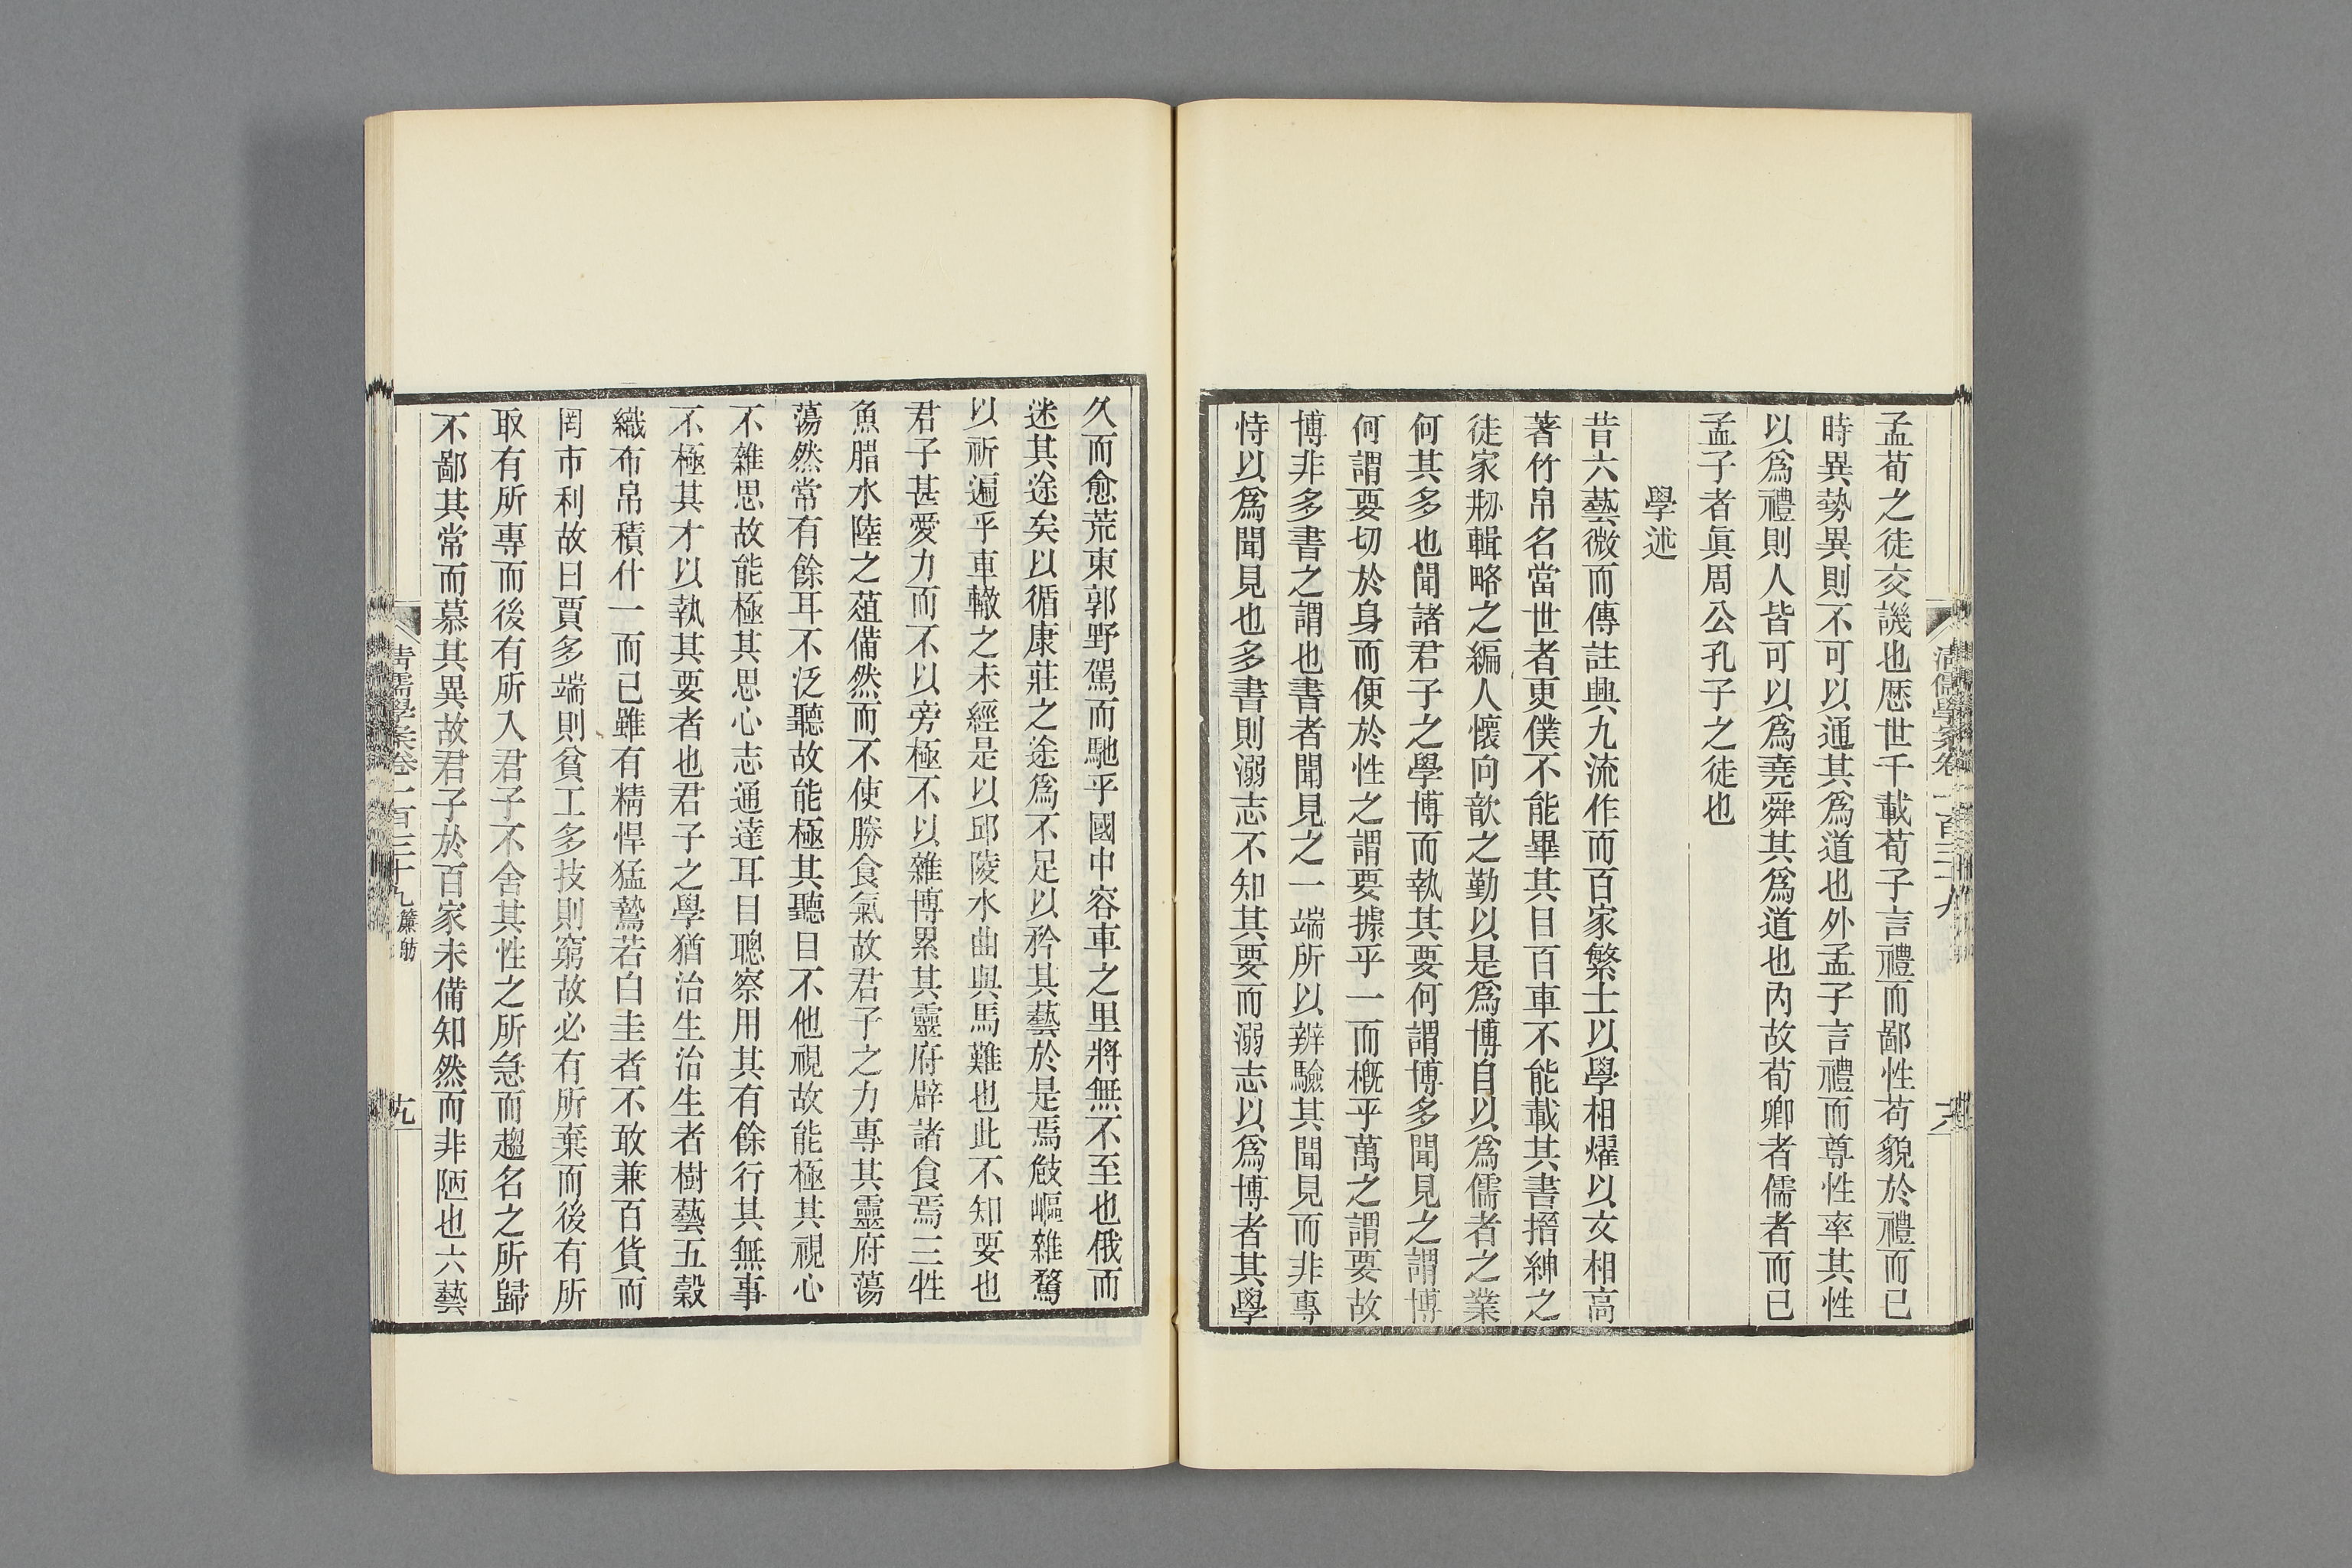 孟荀之徒交譏也歷世千載荀子言禮而鄙性苟貌於禮而已
時異勢異則不可以通其爲道也外孟子言禮而尊性率其性
以爲禮則人皆可以爲堯舜其爲道也內故荀卿者儒者而已
孟子者眞周公孔子之徒也
學述
昔六藝微而傳註興九流作而百家繁士以學相燿以文相高
著竹帛名當世者更僕不能畢其目百車不能載其書搢紳之
徒家剙輯略之編人懷向歆之勤以是爲博自以爲儒者之業
何其多也聞諸君子之學博而執其要何謂博多聞見之謂博
何謂要切於身而便於性之謂要據乎一而槪乎萬之謂要故
博非多書之謂也書者聞見之一端所以辨驗其聞見而非專
恃以爲聞見也多書則溺志不知其要而溺志以爲博者其學
久而愈荒東郭野駕而馳乎國中容車之里將無不至也俄而
迷其途矣以循康莊之途爲不足以矜其藝於是焉敧嶇雜騖
以祈遍乎車轍之未經是以邱陵水曲與馬難也此不知要也
君子甚愛力而不以旁極不以雜博累其靈府辟諸食焉三牲
魚腊水陸之葅備然而不使勝食氣故君子之力專其靈府蕩
蕩然常有餘耳不泛聽故能極其聽目不他視故能極其視心
不雜思故能極其思心志通達耳目聰察用其有餘行其無事
不極其才以執其要者也君子之學猶治生治生者樹藝五穀
織布帛積什一而已雖有精悍猛鷙若白圭者不敢兼百貨而
罔市利故曰賈多端則貧工多技則窮故必有所棄而後有所
取有所專而後有所入君子不舍其性之所急而趨名之所歸
不鄙其常而慕其異故君子於百家未備知然而非陋也六藝
清儒學案卷一百三十九 簾舫